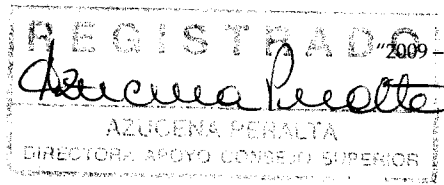 REGISTRADO
"2009 –
Azucena Peralta
AZUCENA PERALTA
DIRECTORA APOYO CONSEJO SUPERIOR